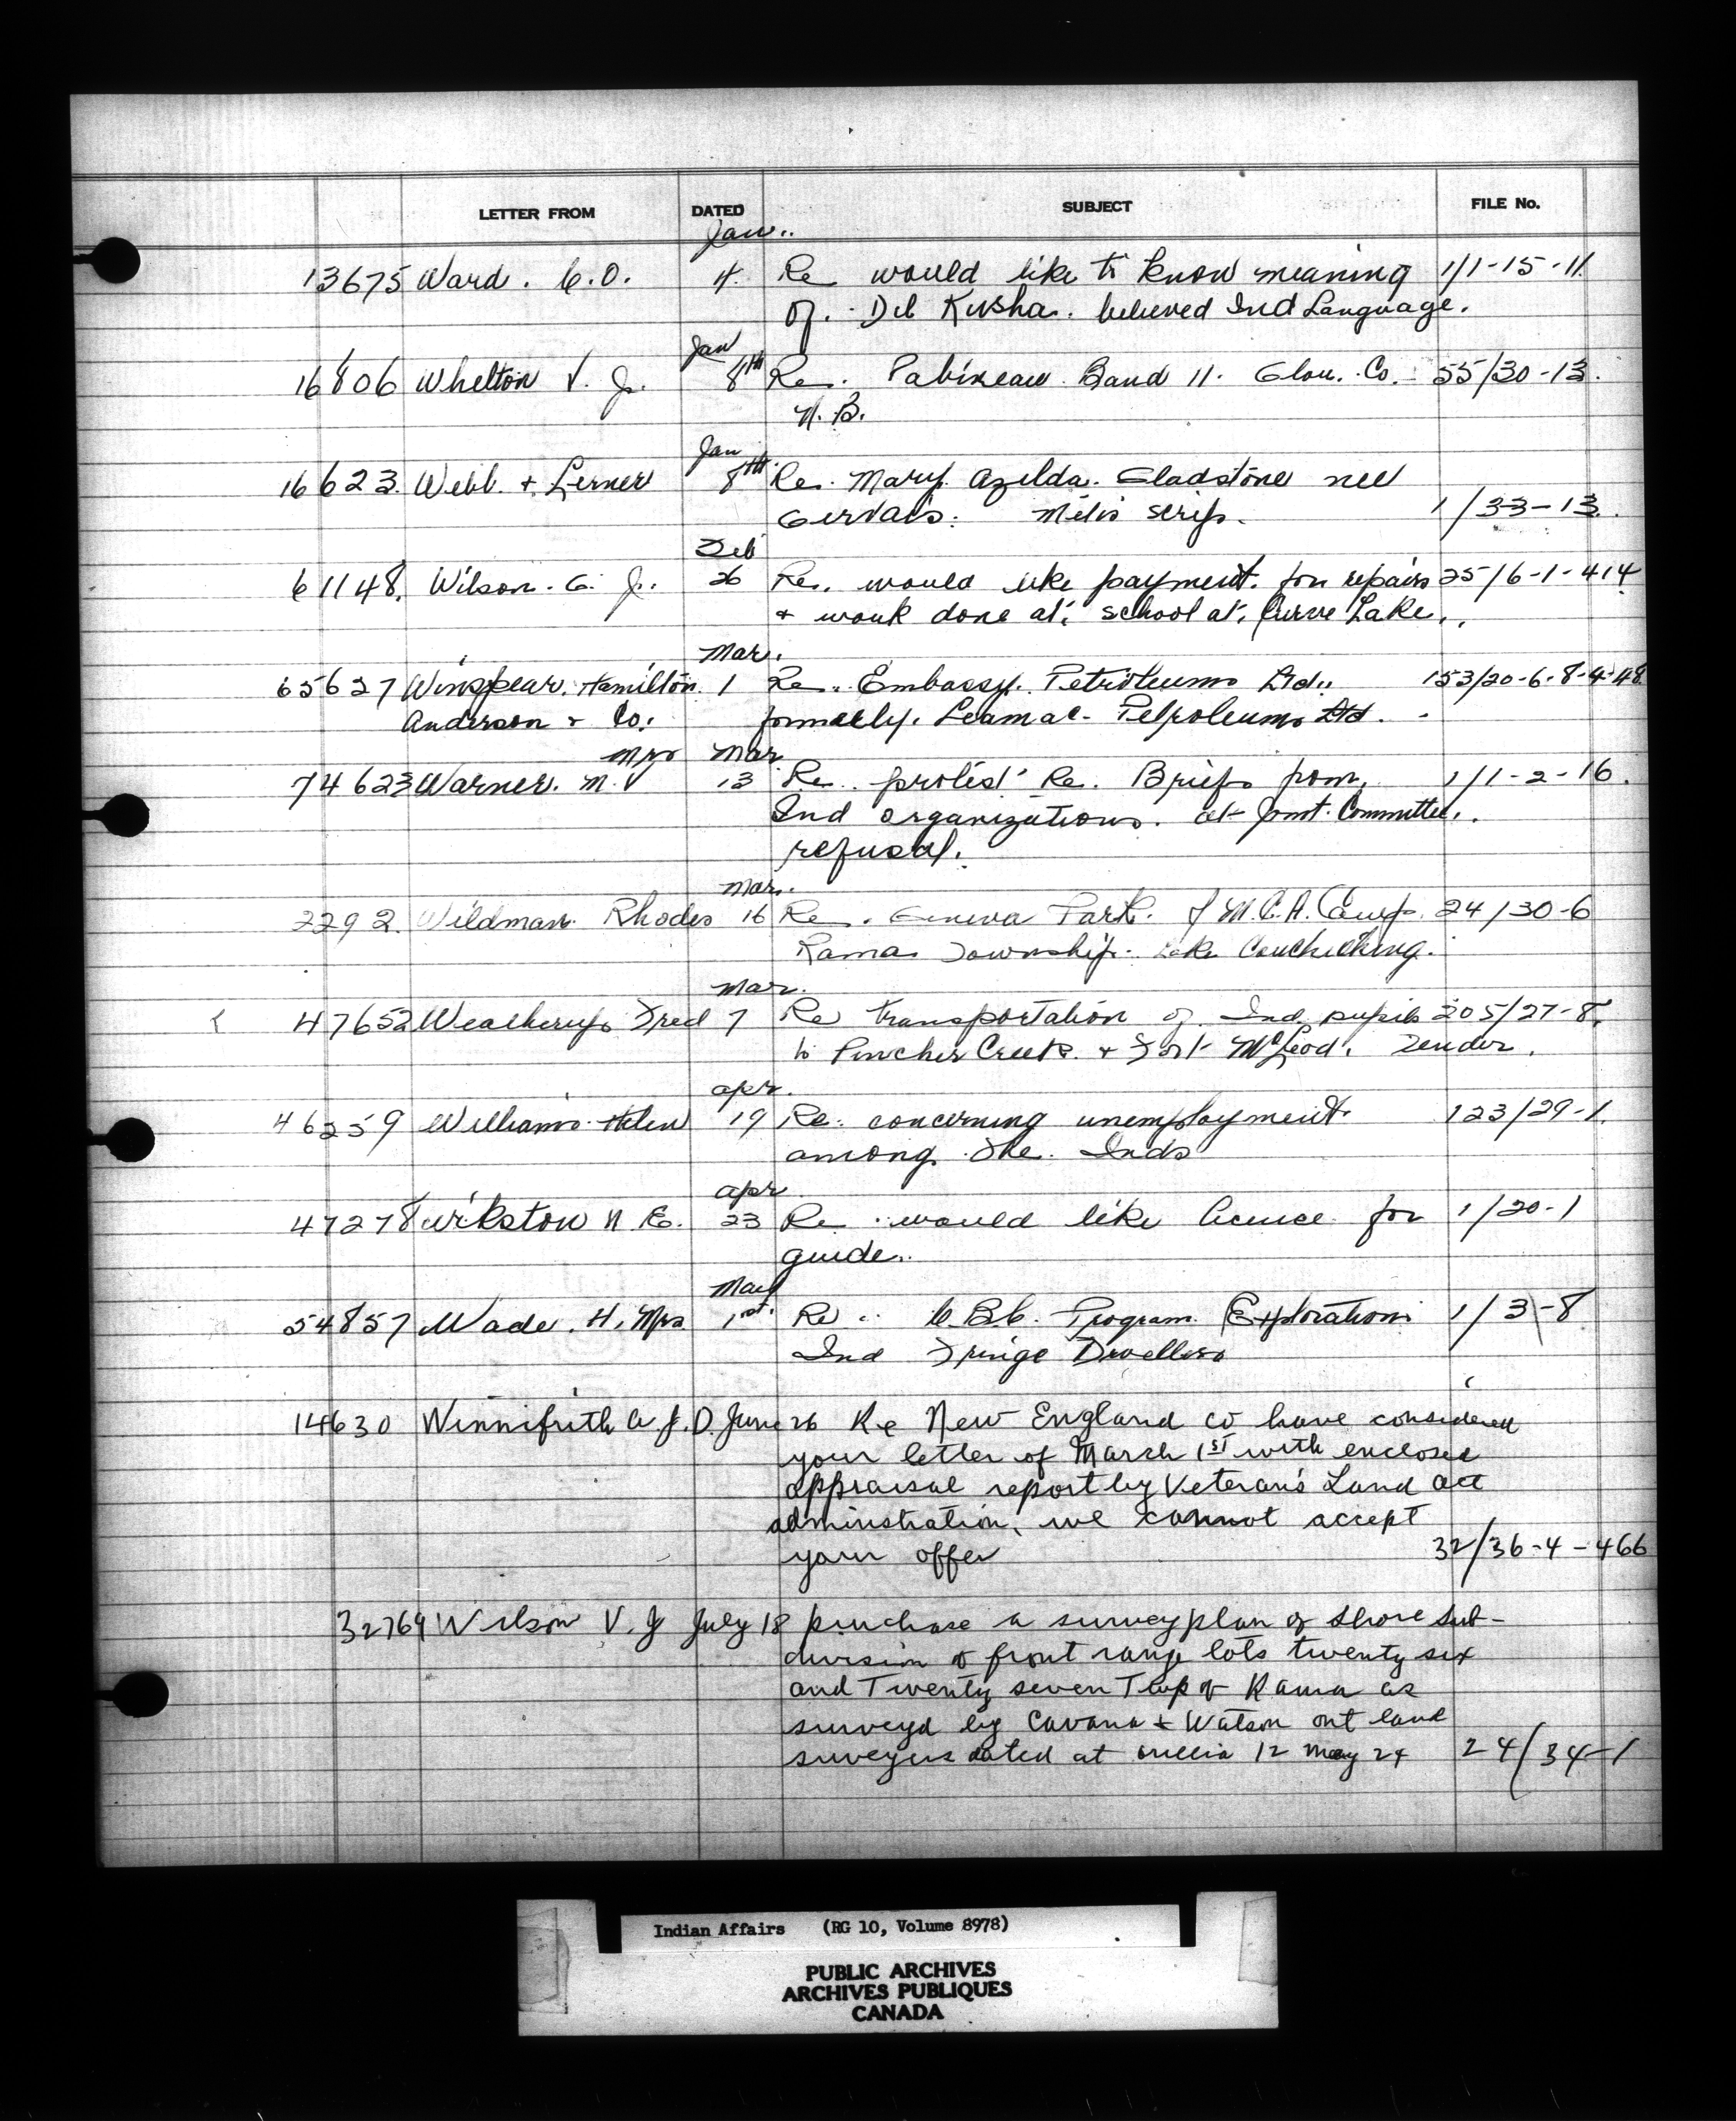 LETTER FROM DATED SUBJECT FILE No.
Jan.
13675 Ward. C.O. 4. Re would like to know meaning 1/1-15-11
of. Deb Kusha. believed Ind Language.
Jan
16806 Whelton V. J. 8th Re. Pabineau Band 11. Glou. Co. 55/30-13.
N.B.
Jan
16623. Webb. + Lerner 8th. Re. Mary. Azilda. Gladstone nee
Gervais. Metis scrip. 1/33-13.
Feb
61148. Wilson. G. J. 26 Re. would like payment. for repairs 25/6-1-414
+ work done at. school at. Curve Lake.
Mar.
65627 Winspear. Hamilton. 1 Re. Embassy. Petroleums Ltd. 153/20-6-8-4-48
Anderson + Co. formerly. Leamac. Petroleums Ltd.
Mrs Mar
74623 Warner. M. 13 Re. protest Re. Briefs from. 1/1-2-16.
Ind organizations. at Joint. Committee.
refusal.
Mar.
2292. Wildman. Rhodes 16 Re. Geneva Park. Y M.C.A. Camp. 24/30-6
Rama Township. Lake Couchiching.
Mar.
47652 Fred 7 Re transportation of Ind pupils 205/27-8.
to Pincher Creek. + Fort McLeod. Tender.
Apr.
46259 Williams. Helen 19 Re. concerning unemployment. 123/29-1.
among. the. Inds
Apr
47278 Wikston N E. 23 Re would like licence for 1/20-1
guide.
May
54857 Wade. H. Mrs 1st. Re C.B.C. Program. Explorations 1/3-8
Ind Fringe Dwellers
14630 Winnifrith A J. D. June 26 Re New England Co have considered
your letter of March 1st with enclosed
appraisal report by Veteran's Land act
adminstration, we cannot accept
your offer 32/36-4-466
32764 Wilson V. J July 18 purchase a survey plan of shore sub-
division of front range lots twenty six
and Twenty seven Twp of Rama as
surveyd by Cavana + Watson ont land
surveyers dated at orillia 12 may 24 24/34-1
Indian Affairs (RG 10, Volume 8978)
PUBLIC ARCHIVES
ARCHIVES PUBLIQUES
CANADA